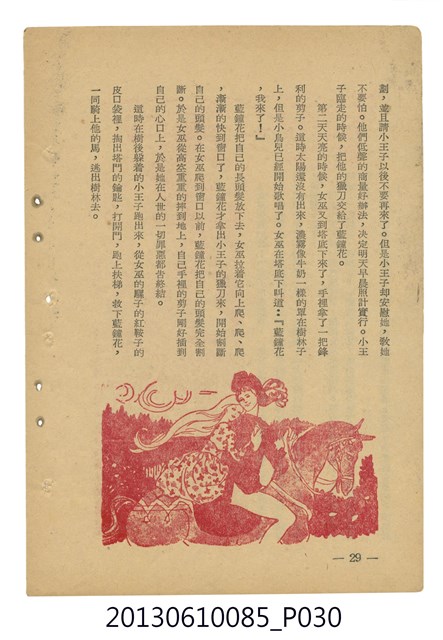 劃，並且請小王子以後不要再來了。但是小王子却安慰她，敎她
不要怕。他們低聲的商量好辦法，決定明天早晨照計實行。小王
子臨走的時候，把他的獵刀交給了藍鐘花。
第二天天亮的時候，女巫又到塔底下來了，手裡拿了一把鋒
利的剪子。這時太陽還沒有出來，濃霧像牛奶一樣的罩在樹林子
上，但是小鳥兒已經開始歌唱了。女巫在塔底下叫道：「藍鐘花
，我來了！」
藍鐘花把自己的長頭髮放下去，女巫拉着它向上爬、爬、爬
，漸漸的快到窗口了，藍鐘花才拿出小王子的獵刀來，開始割斷
自己的頭髮。在女巫爬到窗口以前，藍鐘花把自己的頭髮完全割
斷。於是女巫從高空重重的摔到地上，自己手裡的剪子剛好插到
自己的心口上，於是她在人世的一切罪惡都告終結。
這時在樹後躲着的小王子跑出來，從女巫的騾子的紅鞍子的
皮口袋裡，掏出塔門的鑰匙，打開門，跑上扶梯，救下藍鐘花，
一同騎上他的馬，逃出樹林去。
— 29 —
20130610085_P030